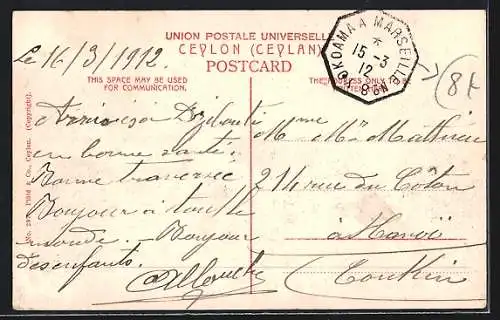 UNION POSTALE UNIVERSELLE
CEYLON (CEYLAN)
POSTCARD
THIS SPACE MAY BE USED
FOR COMMUNICATION.
THE ADDRESS ONLY TO BE
WRITTEN
YOKOAMA A MARSEILLE
*
15 -3
12
N° 8
8k
Le 16/3/1912.
Arrivés à Djibouti
en bonne santé.
Bonne traversée
Bonjour à tout le
monde. - Bonjour
des enfants.
No. 29. Plâté & Co., Ceylon. (Copyright).
Mme Mr Mathieu
214 rue du Coton
à Hanoï
Tonkin